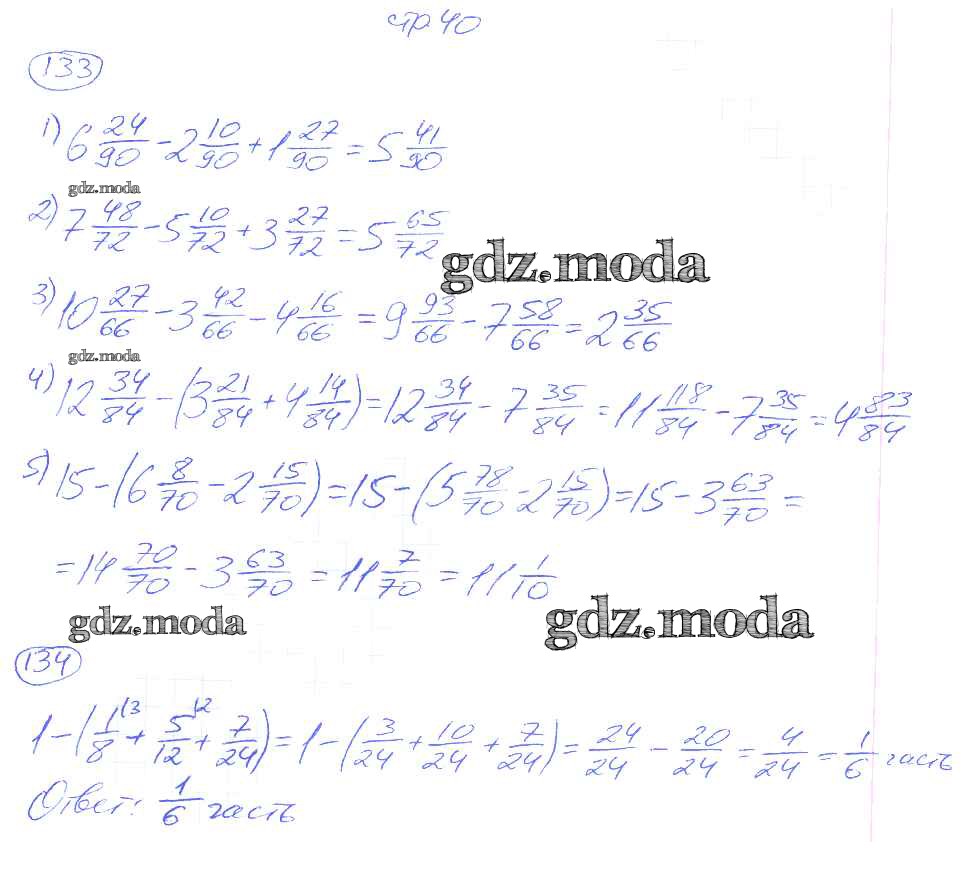 стр 40
133
1) 6 24/90 - 2 10/90 + 1 27/90 = 5 41/90
gdz.moda
2) 7 48/72 - 5 10/72 + 3 27/72 = 5 65/72
gdz.moda
3) 10 27/66 - 3 42/66 - 4 16/66 = 9 93/66 - 7 58/66 = 2 35/66
gdz.moda
4) 12 34/84 - (3 21/84 + 4 14/84) = 12 34/84 - 7 35/84 = 11 118/84 - 7 35/84 = 4 83/84
5) 15 - (6 8/70 - 2 15/70) = 15 - (5 78/70 - 2 15/70) = 15 - 3 63/70 =
= 14 70/70 - 3 63/70 = 11 7/70 = 11 1/10
gdz.moda
gdz.moda
134
1 - (1/8 (3 + 5/12 (2 + 7/24) = 1 - (3/24 + 10/24 + 7/24) = 24/24 - 20/24 = 4/24 = 1/6 часть
Ответ: 1/6 часть